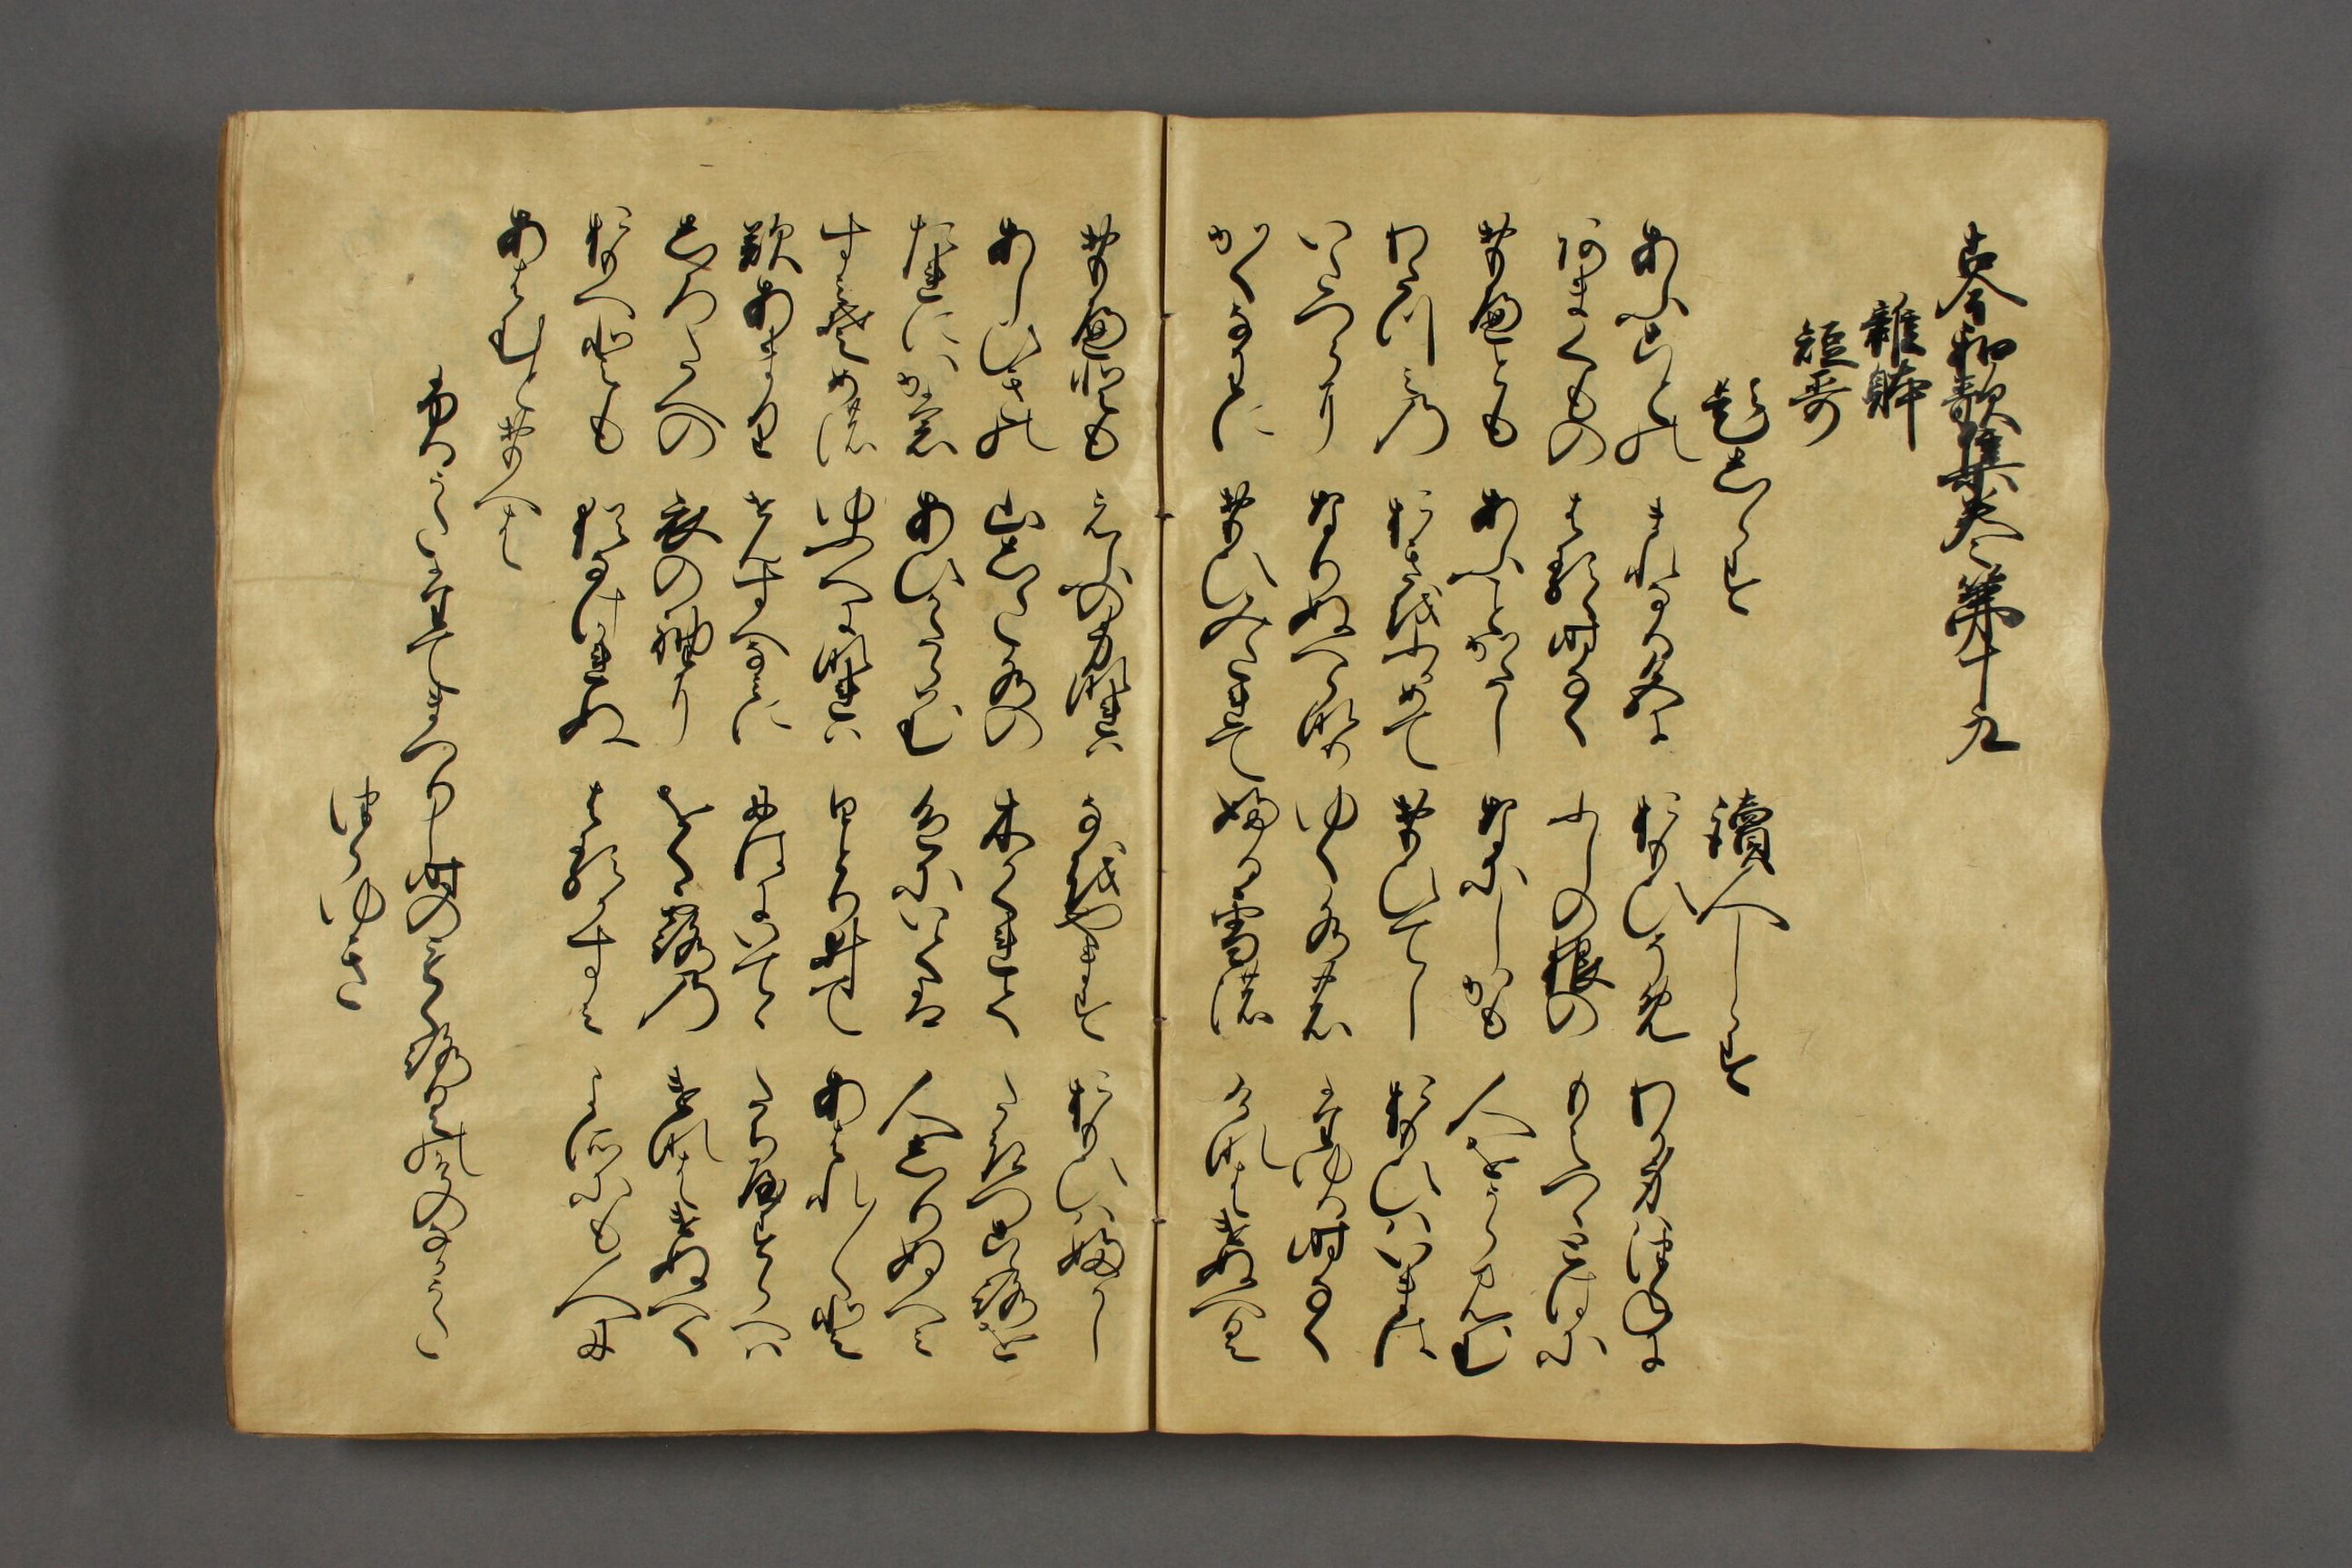 古今和歌集巻第十九
雑躰
短哥
題しらす 讀人しらす
あふことの まれなる色に おもひそめ わか身はつねに
あまくもの はるゝ時なく ふしの根の もえつゝとはに
おもへとも あふことかたし なにしかも 人をうらみむ
わたつみの おきをふかめて おもひてし おもひはいまは
いたつらに なりぬへらなり ゆく水の たゆる時なく
かくなわに おもひみたれて ふる雪の けなはけぬへく
おもへとも えふの身なれは なをやますす おもひはふかし
あしひきの 山した水の 木かくれて たきつ心を
たれにかも あひかたらはむ 色にいては 人しりぬへみ
すみそめの ゆふへになれは ひとりゐて あはれ／＼と
歎あまり せんすへなみに にはにいてゝ たちやすらへは
しろたへの 衣の袖に をく露の けなはけぬへく
おもへとも 猶なけかれぬ はるかすみ よそにも人に
あはむとおもへは
ふるうたたてまつりし時のもくろくのそのなかうた
つらゆき